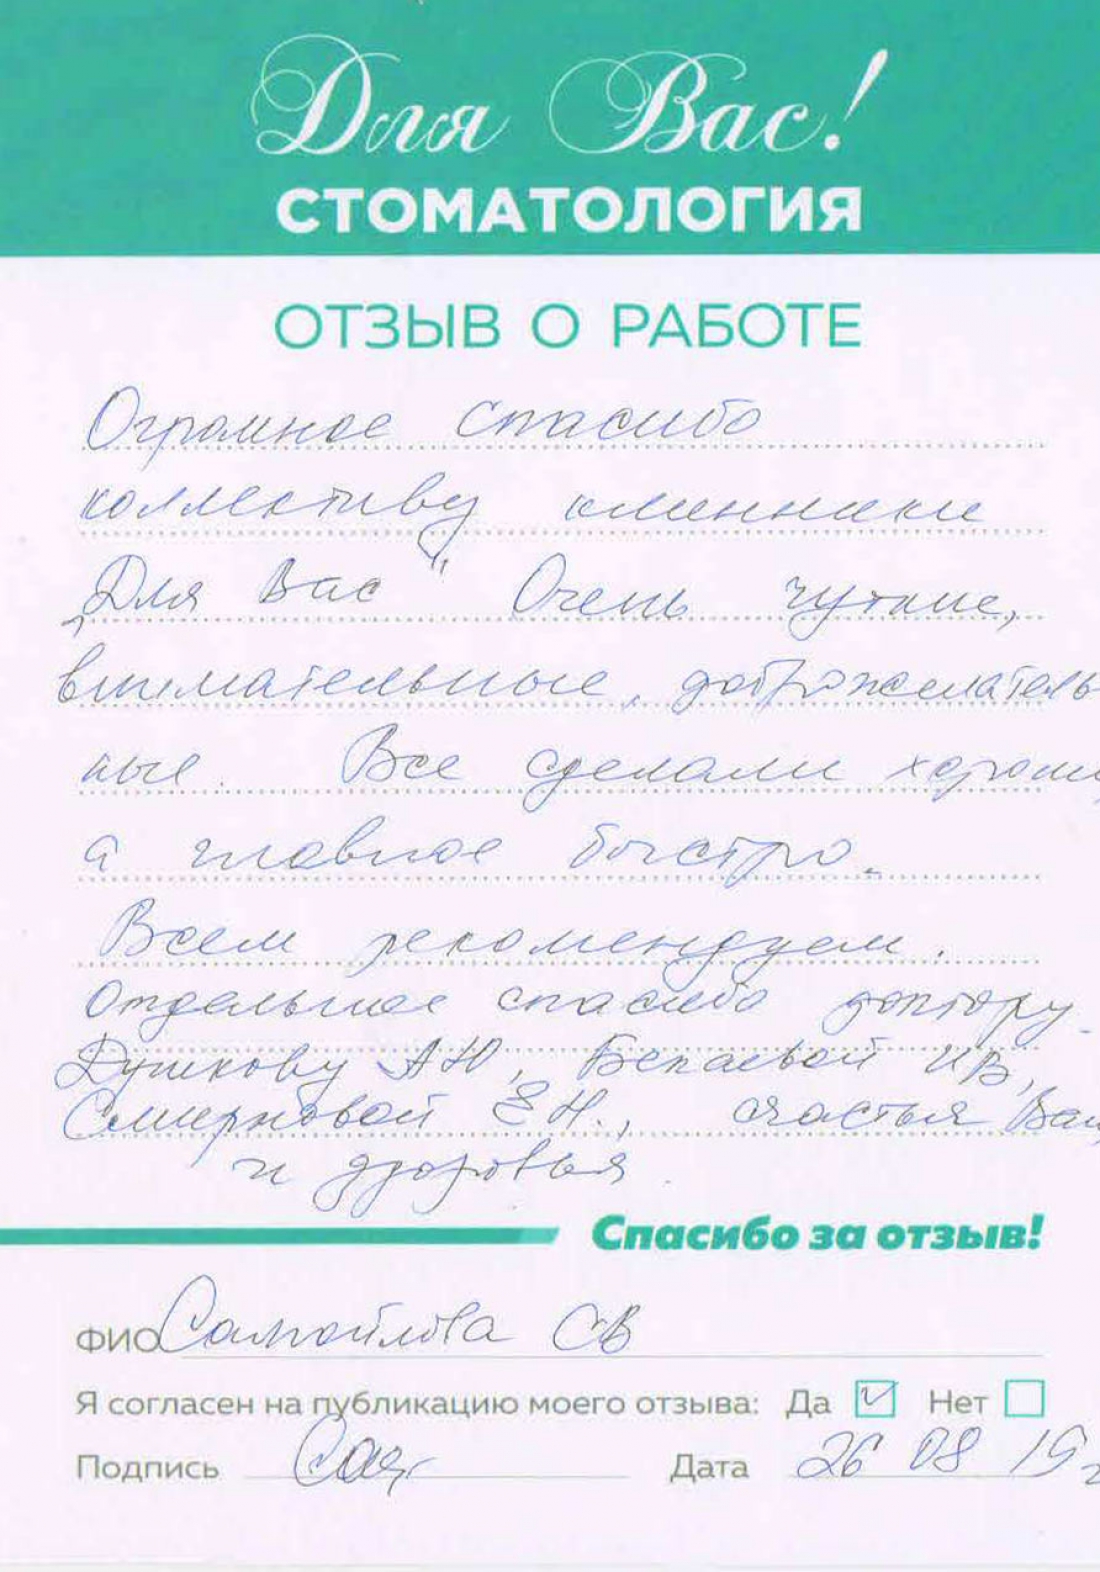 Для Вас!
СТОМАТОЛОГИЯ
ОТЗЫВ О РАБОТЕ
Огромное спасибо
коллективу клинники
„Для Вас" Очень чуткие,
внимательные, доброжелатель
ные. Все сделали хорошо,
а главное быстро.
Всем рекомендуем.
Отдельное спасибо доктору
Душкову АЮ, Бекаевой ИВ,
Смирновой ЕН., счастья Вам
и здоровья.
Спасибо за отзыв!
ФИО Самойлова СВ
Я согласен на публикацию моего отзыва: Да ☑ Нет ☐
Подпись Дата 26 08 19г